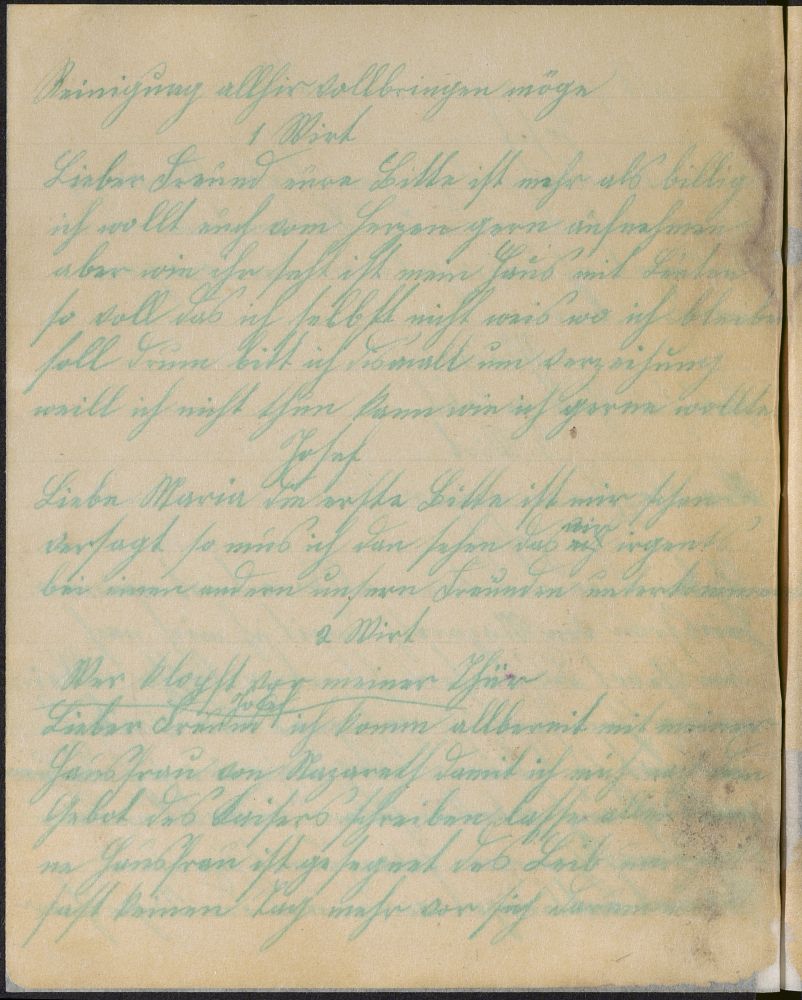 Reinigung allhir vollbringen möge
1 Wirt
Lieber Freund eure Bitte ist mehr als billig
ich wollt euch vom Herzen gern aufnehmen
aber wie ihr seht ist mein Haus mit Leuten
so voll das ich selbst nicht weis wo ich bleiben
soll drum bitt ich dismall um verzeihung
weill ich nicht thun kann wie ich gerne wollte
Josef
Liebe Maria die erste Bitte ist mir schon
versagt so mus ich dan sehen das wir irgent
bei einen andern unsern Freunden unterkommen
2 Wirt
Wer klopft vor meiner Thür
Josef
Lieber Freund ich komm allbereit mit meiner
Hausfrau von Nazareth damit ich mich
Gebot des Kaisers schreiben lasse
ne Hausfrau ist gesegnet des Leib
hast keinen tag mehr vor sich darum